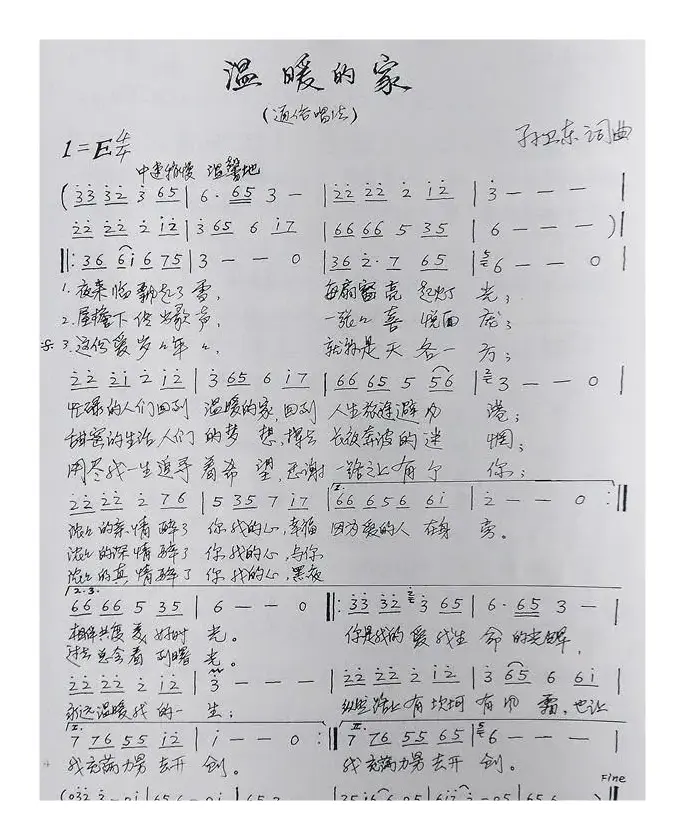 温暖的家
(通俗唱法)
1=E 4/4
孙卫东词曲
中速稍慢 温馨地
(33 32 3 65 | 6· 65 3 — | 22 22 2 12 | 3 — — — |
22 22 2 12 | 3 65 6 17 | 66 66 5 35 | 6 — — — )|
‖: 36 61 6 75 | 3 — — 0 | 36 2· 7 65 | 6 — — 0 |
1. 夜来临 了 雪, 每扇窗亮起灯光;
2. 屋檐下传出歌声, 一张张喜悦面庞;
3. 这份爱岁岁年年, 就算是天各一方;
22 21 2 12 | 3 65 6 17 | 66 65 5 56 | 3 — — 0 |
忙碌的人们回到 温暖的家,回到 人生旅途避风港;
甜蜜的生活人们的梦想,挥去 长夜奔波的迷惘;
用尽我一生追寻着希望,感谢 一路上有个你;
22 22 2 76 | 5 35 7 17 | 1. 66 656 61 | 2 — — 0 :‖
浓浓的亲情醉了 你我的心,幸福 因为爱的人在身旁。
浓浓的深情醉了 你我的心,与你
浓浓的真情醉了 你我的心,黑夜
2.3.
66 66 5 35 | 6 — — 0 ‖: 33 32 3 65 | 6· 65 3 — |
相伴共度美好时光。 你是我的爱我生命的光辉,
过去总会看到曙光。
22 22 2 12 | 3 — — — | 22 22 2 12 | 3 65 6 61 |
永远温暖我的一生; 纵然路上有坎坷有风霜,也让
I. 7 76 55 12 | 1 — — 0 :‖ II. 7 76 55 65 | 6 — — — |
我充满力量去开创。 我充满力量去开创。
Fine